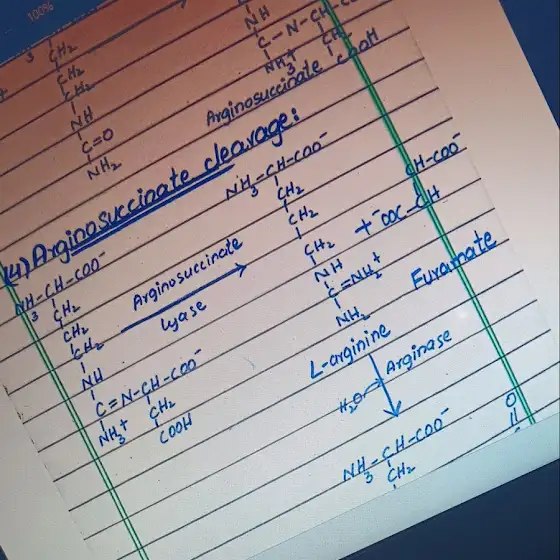 100%
3 CH₂
CH₂
CH₂
NH
C=O
NH₂
NH
C-N-CH-
NH₃⁺ CH₂
COOH
Arginosuccinate
(4) Arginosuccinate cleavage:
NH₃-CH-COO⁻
CH₂
CH₂
CH₂
NH
C=N-CH-COO⁻
NH₃⁺ CH₂
COOH
Arginosuccinate
lyase
NH₃-CH-COO⁻
CH₂
CH₂
CH₂
NH
C=NH₂⁺
NH₂
L-arginine
+
CH-COO⁻
⁻OOC-CH
Furamate
H₂O
Arginase
NH₃-CH-COO⁻
CH₂
O